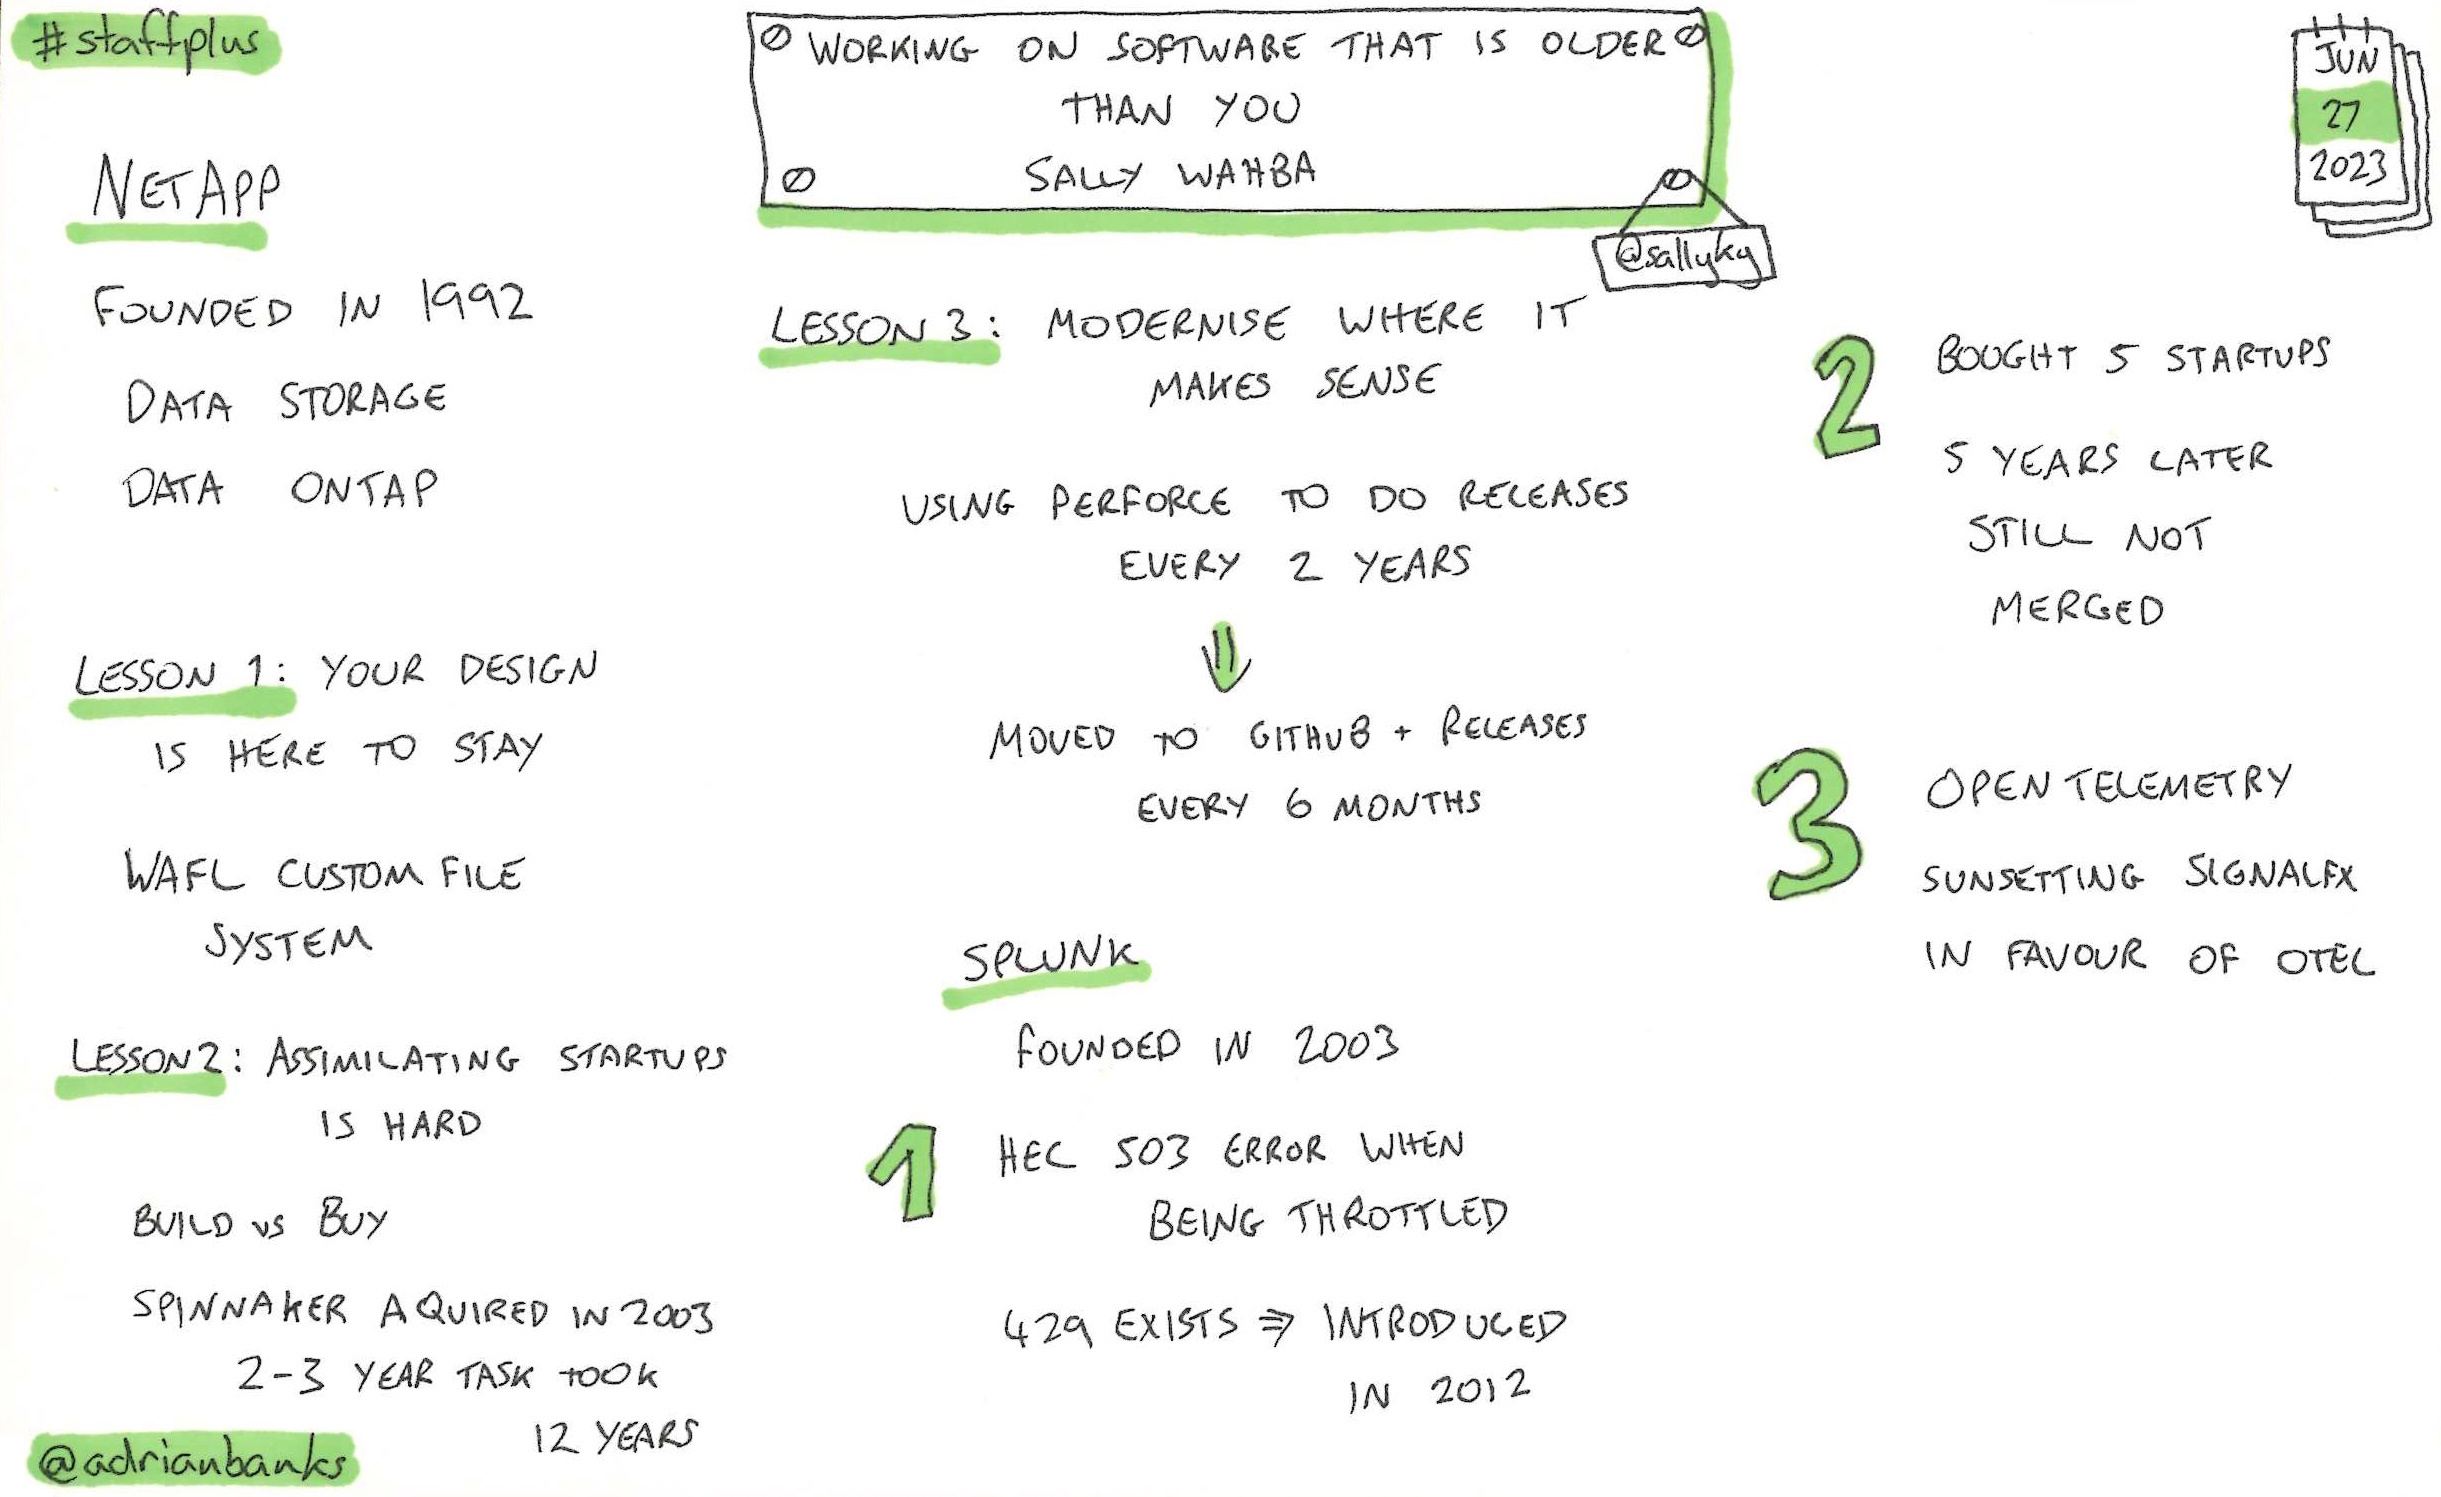 #staffplus
WORKING ON SOFTWARE THAT IS OLDER
THAN YOU
SALLY WAHBA
@sallyky
JUN
27
2023
NETAPP
FOUNDED IN 1992
DATA STORAGE
DATA ONTAP
LESSON 1: YOUR DESIGN
IS HERE TO STAY
WAFL CUSTOM FILE
SYSTEM
LESSON 2: ASSIMILATING STARTUPS
IS HARD
BUILD VS BUY
SPINNAKER AQUIRED IN 2003
2-3 YEAR TASK TOOK
12 YEARS
@adrianbanks
LESSON 3: MODERNISE WHERE IT
MAKES SENSE
USING PERFORCE TO DO RELEASES
EVERY 2 YEARS
⇓
MOVED TO GITHUB + RELEASES
EVERY 6 MONTHS
SPLUNK
FOUNDED IN 2003
1 HEC 503 ERROR WHEN
BEING THROTTLED
429 EXISTS ⇒ INTRODUCED
IN 2012
2 BOUGHT 5 STARTUPS
5 YEARS LATER
STILL NOT
MERGED
3 OPEN TELEMETRY
SUNSETTING SIGNALFX
IN FAVOUR OF OTEL